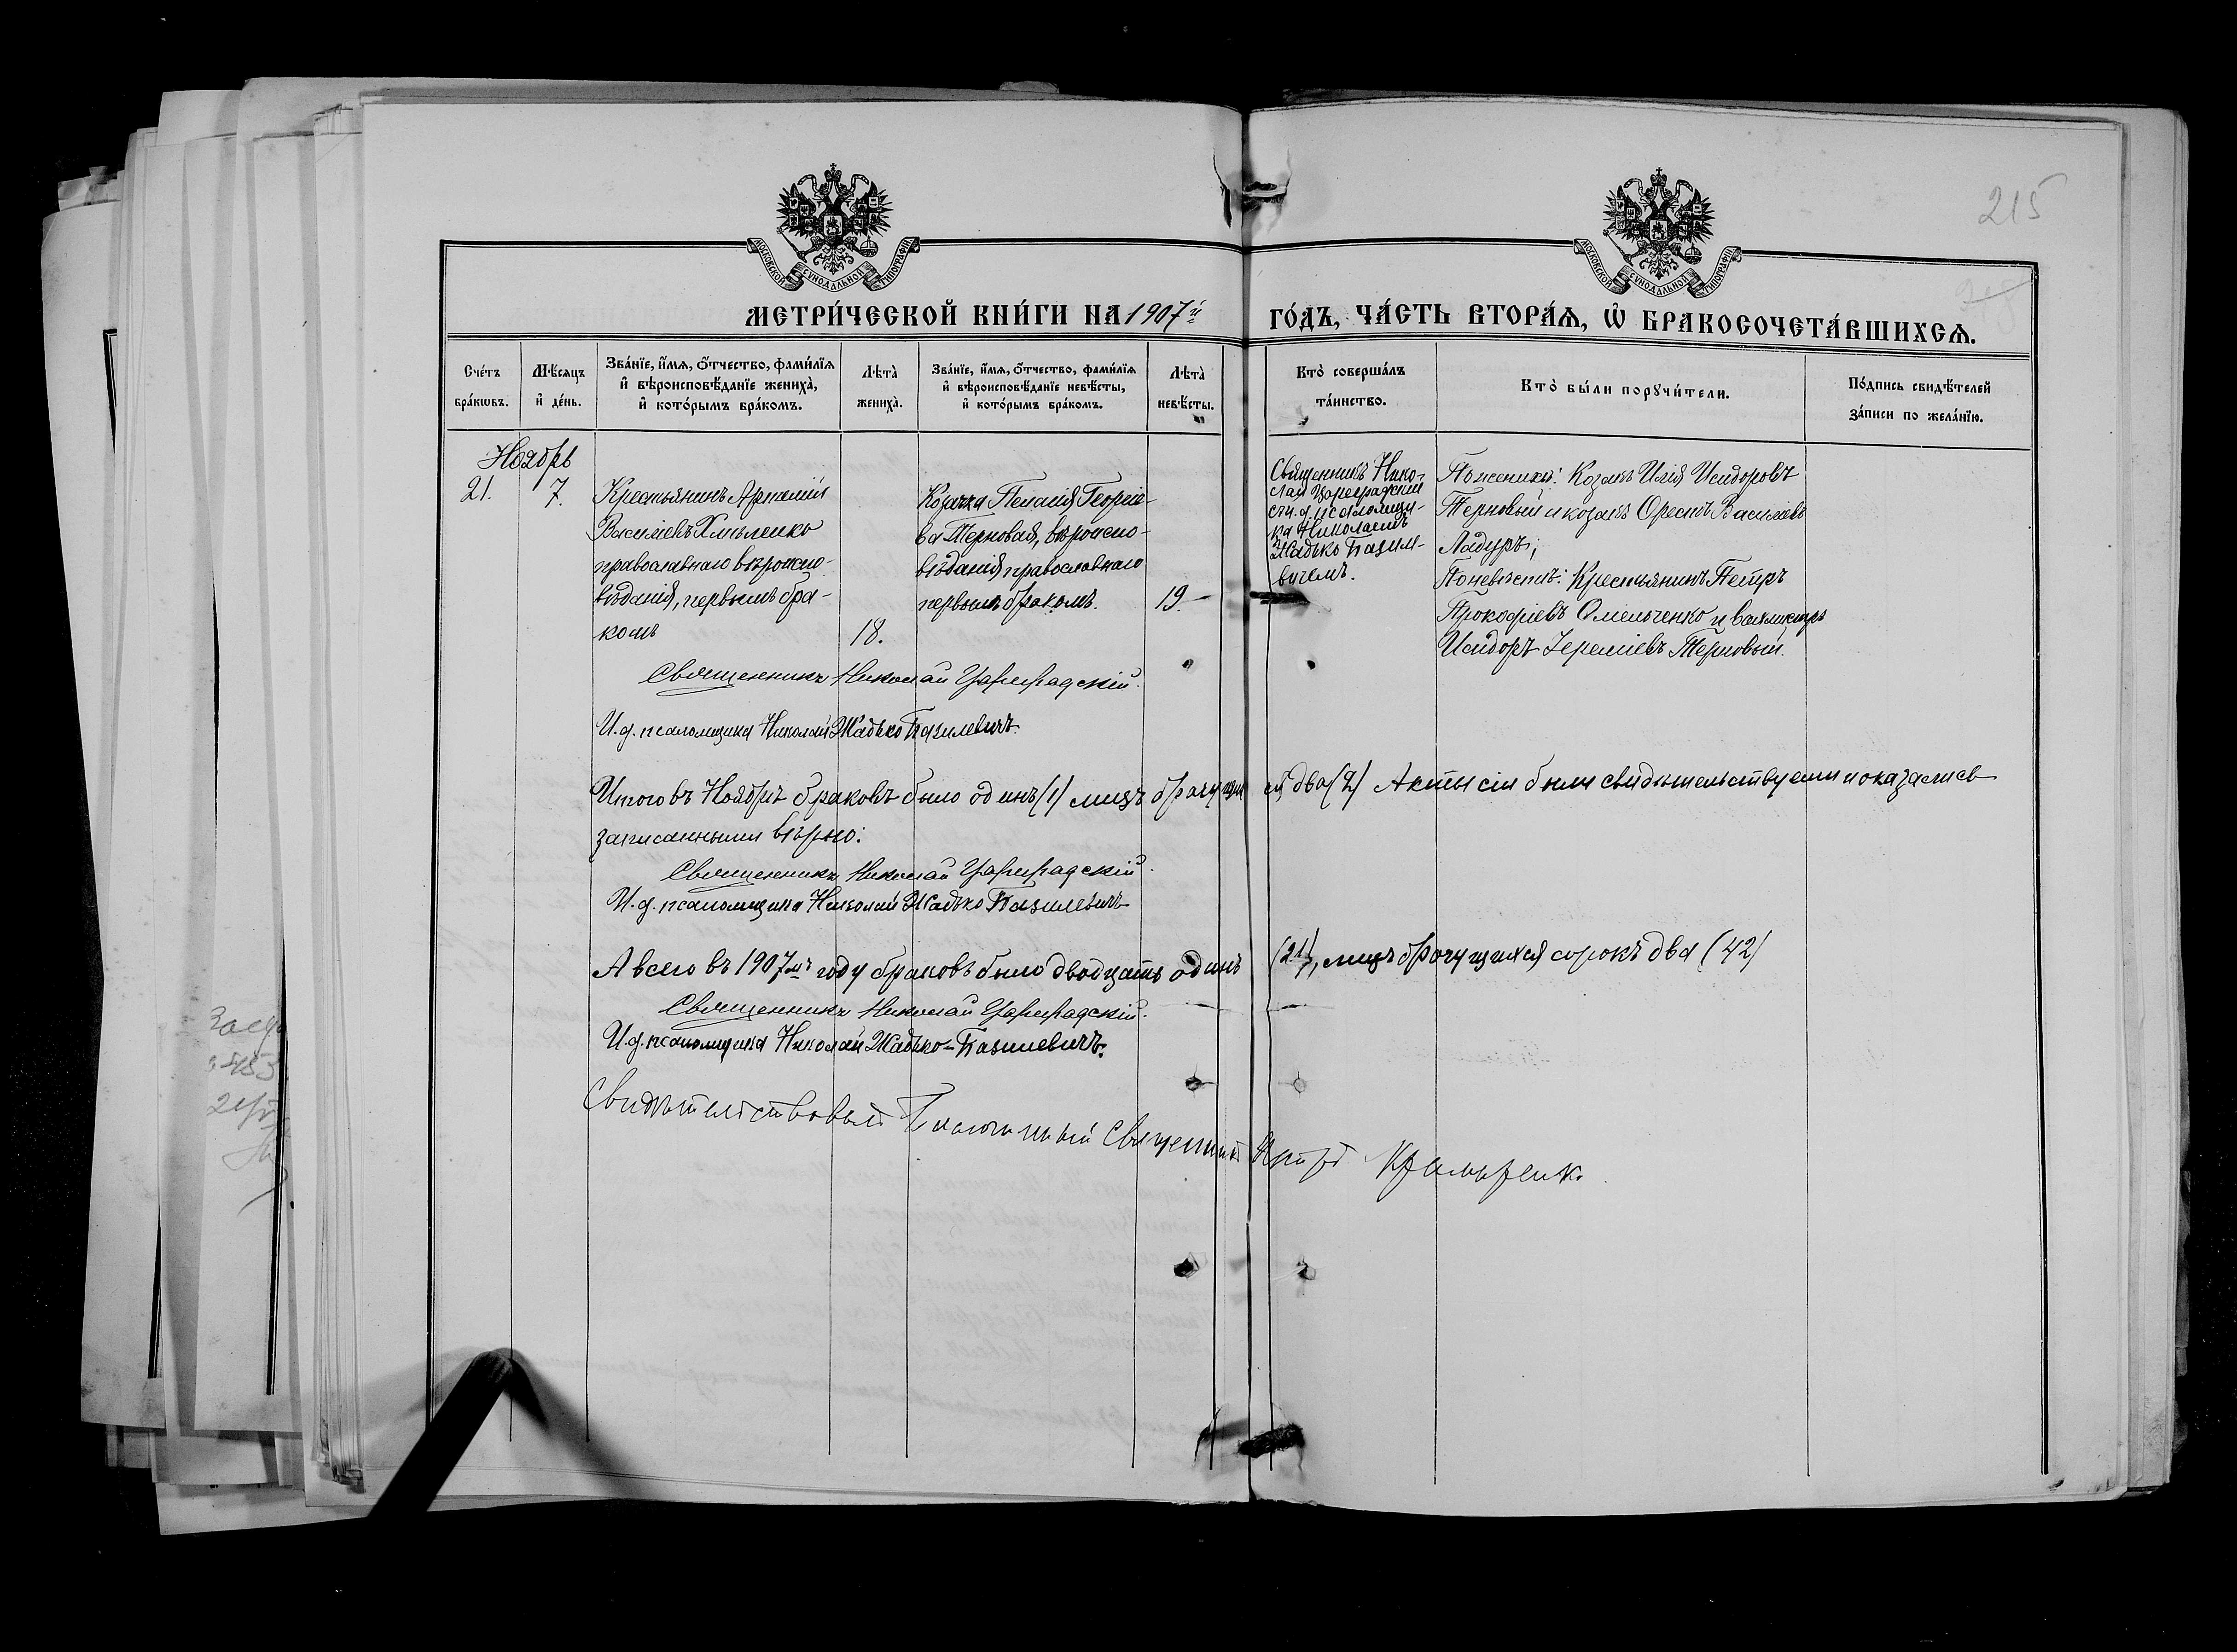 215
МОСКОВСКОЙ СУНОДАЛЬНОЙ ТИПОГРАФІИ
МОСКОВСКОЙ СУНОДАЛЬНОЙ ТИПОГРАФІИ
МЕТРИ́ЧЕСКОЙ КНИ́ГИ НА 1907й ГО́ДЪ, ЧА́СТЬ ВТОРА́Ѧ, Ѡ҆ БРАКОСОЧЕТА́ВШИХСѦ.
Сче́тъ
бра́кѡвъ.
Мѣ́сяцъ
и҆ де́нь.
Зва́нїе, и҆́мѧ, о҆́тчество, фами́лїѧ
и҆ вѣроисповѣ́данїе жениха̀,
и҆ кото́рымъ бра́комъ.
Лѣта̀
жениха̀.
Зва́нїе, и҆́мѧ, о҆́тчество, фами́лїѧ
и҆ вѣроисповѣ́данїе невѣ́сты,
и҆ кото́рымъ бра́комъ.
Лѣта̀
невѣ́сты.
Кто̀ соверша́лъ
та́инство.
Кто̀ бы́ли порꙋчи́тели.
По́дпись свидѣ́телей
за́писи по жела́нїю.
Ноябрь
21.
7.
Крестьянинъ Артемій
Васильевъ Хмѣленко
православнаго вѣроиспо-
вѣданія, первымъ бра-
комъ
18.
Козачка Пелагія Георгіе-
ва Терновая, вѣроиспо-
вѣданія православнаго
первымъ бракомъ.
19.
Священникъ Нико-
лай Цареградскій
съ и.д. псаломщи-
ка Николаемъ
Жадько Базиле-
вичемъ.
По женихѣ: Козакъ Илія Исидоровъ
Терновый и козакъ Орестъ Васильевъ
Ладуръ;
По невѣстѣ: Крестьянинъ Петръ
Прокофіевъ Омельченко и вахмистръ
Исидоръ Іереміевъ Терновый.
Священникъ Николай Цареградскій.
И.д. псаломщика Николай Жадько Базилевичъ.
Итого въ Ноябрѣ браковъ было одинъ (1) лицъ брачущихся два (2) Акты сіи были свидѣтельствуемы и оказались
записанными вѣрно:
Священникъ Николай Цареградскій.
И.д. псаломщика Николай Жадько Базилевичъ
А всего въ 1907мъ году браковъ было двадцать одинъ (21), лицъ брачущихся сорокъ два (42)
Священникъ Николай Цареградскій.
И.д. псаломщика Николай Жадько-Базилевичъ.
Свидѣтельствовалъ Благочинный Священникъ Петръ